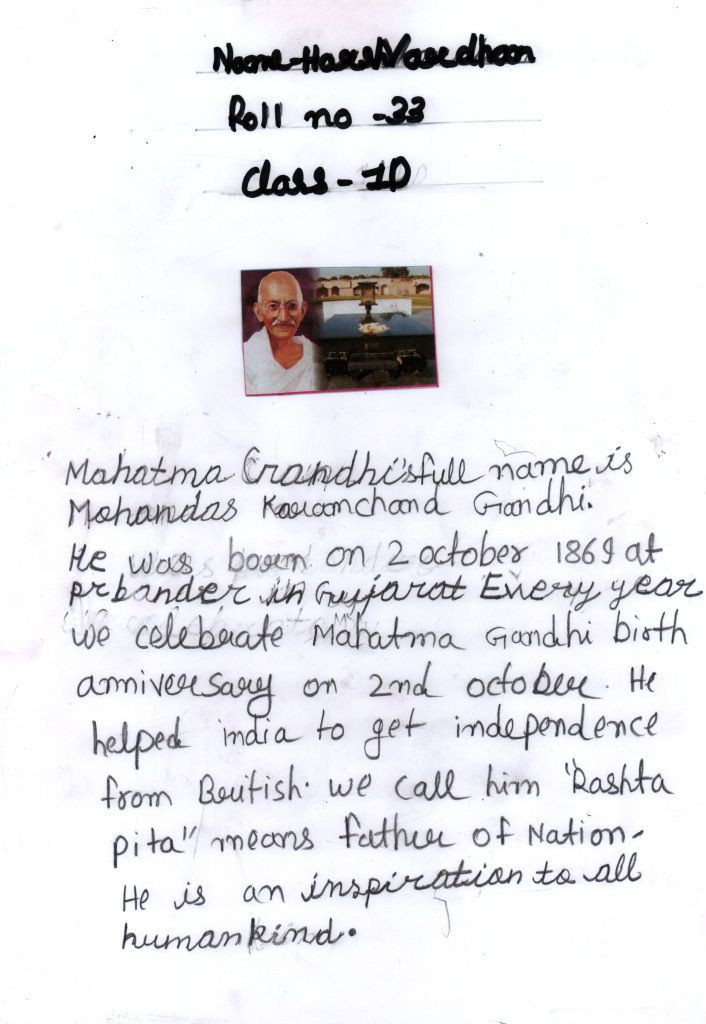 Name-HarshVardhan
Roll no -33
Class-1D
Mahatma Gandhi'sfull name is
Mohandas Karamchand Gandhi.
He was born on 2 october 1869 at
prbander in Gujarat Every year
we celebrate Mahatma Gandhi birth
anniversary on 2nd october. He
helped india to get independence
from British. we call him "Rashta
pita" means father of Nation-
He is an inspiration to all
humankind.